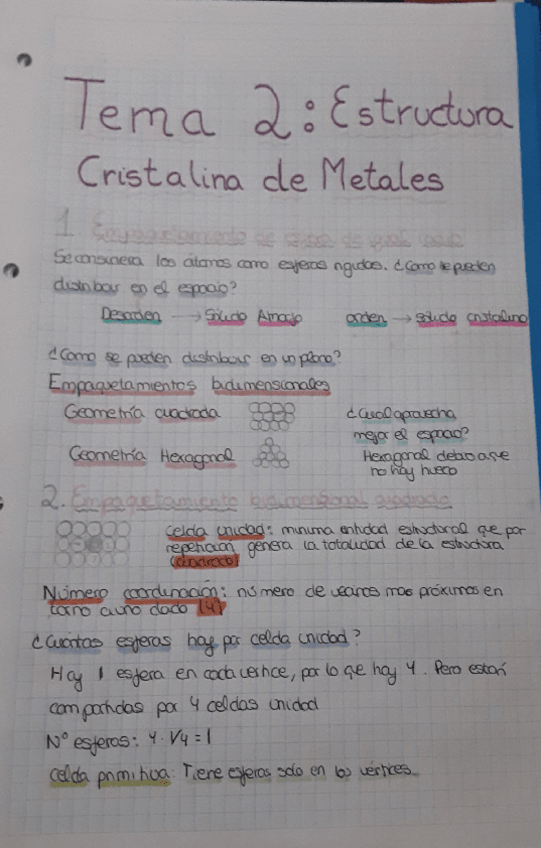 Tema 2: Estructura
Cristalina de Metales
1. Empaquetamiento de esferas de igual radio
Se considera los átomos como esferas rigidas. ¿Como se pueden
distribuir en el espacio?
Desorden → Sólido Amorfo orden → sólido cristalino
¿Como se pueden distribuir en un plano?
Empaquetamientos bidimensionales
Geometría cuadrada
¿Cual aprovecha
mejor el espacio?
Geometría Hexagonal
Hexagonal debido a que
no hay hueco
2. Empaquetamiento bidimensional cuadrado
celda unidad: minima entidad estructural que por
repetición genera la totalidad de la estructura
(cuadrado)
Número coordinación: número de vecinos mas próximos en
torno a uno dado (4)
¿Cuántas esferas hay por celda unidad?
Hay 1 esfera en cada vertice, por lo que hay 4. Pero están
compartidas por 4 celdas unidad
Nº esferas: 4 · 1/4 = 1
Celda primitiva: Tiene esferas solo en los vértices.